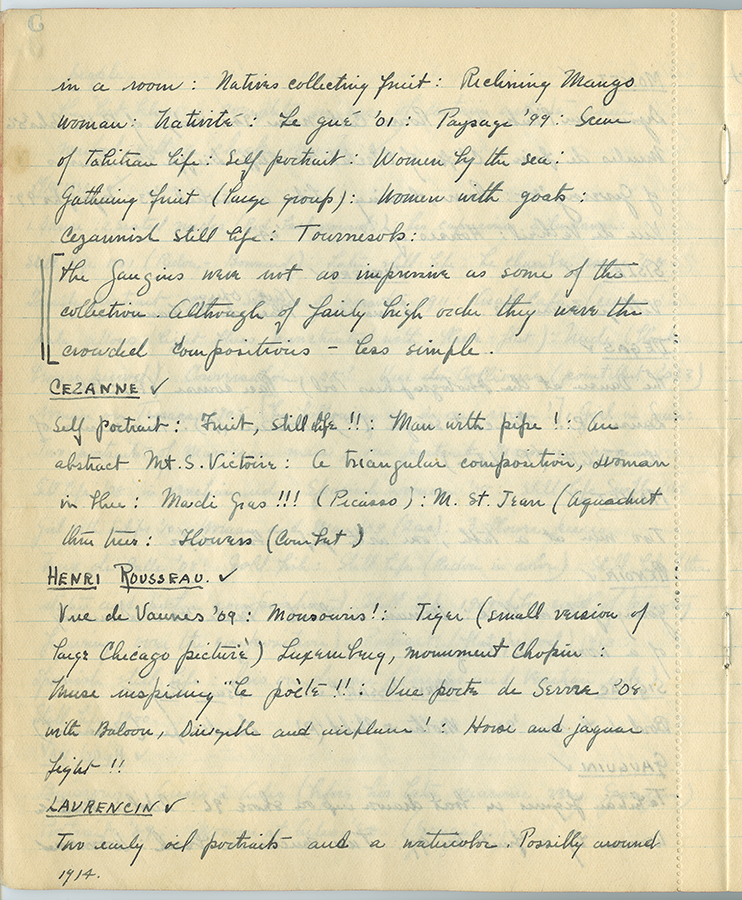 in a room : Natives collecting fruit : Reclining Mango
woman : Nativité : Le gué '01 : Paysage '99 : Scene
of Tahitian life : Self portrait : Women by the sea :
Gathering fruit (large group) : Women with goats :
Cezannish still life : Tournesols :
The Gaugins were not as impressive as some of the
collection. Although of fairly high order they were the
crowded compositions - less simple.
CEZANNE ✓
Self portrait : Fruit, still life !! : Man with pipe ! : An
abstract Mt. S. Victoire : A triangular composition, woman
in blue : Madi Gras !!! (Picasso) : M. St. Jean (Aqueduct
thru trees : Flowers (Courbet)
HENRI ROUSSEAU. ✓
Vue de Vaunes '09 : Monsouris ! : Tiger (small version of
large Chicago picture) Luxemberg, monument Chopin :
Muse inspiring "le poète !! : Vue porte de Sevre '08
with Baloon, Dirigible and airplane ! : Horse and jaguar
fight !!
LAURENCIN ✓
Two early oil portraits and a watercolor. Possilly around
1914.